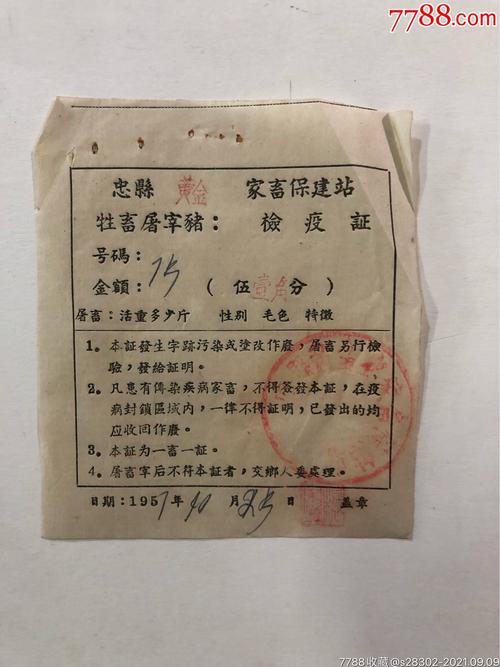 7788.com
忠縣 黃金 家畜保建站
牲畜屠宰豬： 檢疫証
号碼：
金額：15 （伍壹角分）
屠畜：活重多少斤 性別 毛色 特徵
1。本証發生字跡污染或塗改作廢，屠畜另行檢
驗，發給証明。
2。凡患有傳染疾病家畜，不得簽發本証，在疫
病封鎖區域內，一律不得証明，已發出的均
应收回作廢。
3。本証为一畜一証。
4。屠畜宰后不得本証者，交鄉人委處理。
日期：1957年10月25日 盖章
7788收藏@s28302-2021.09.09